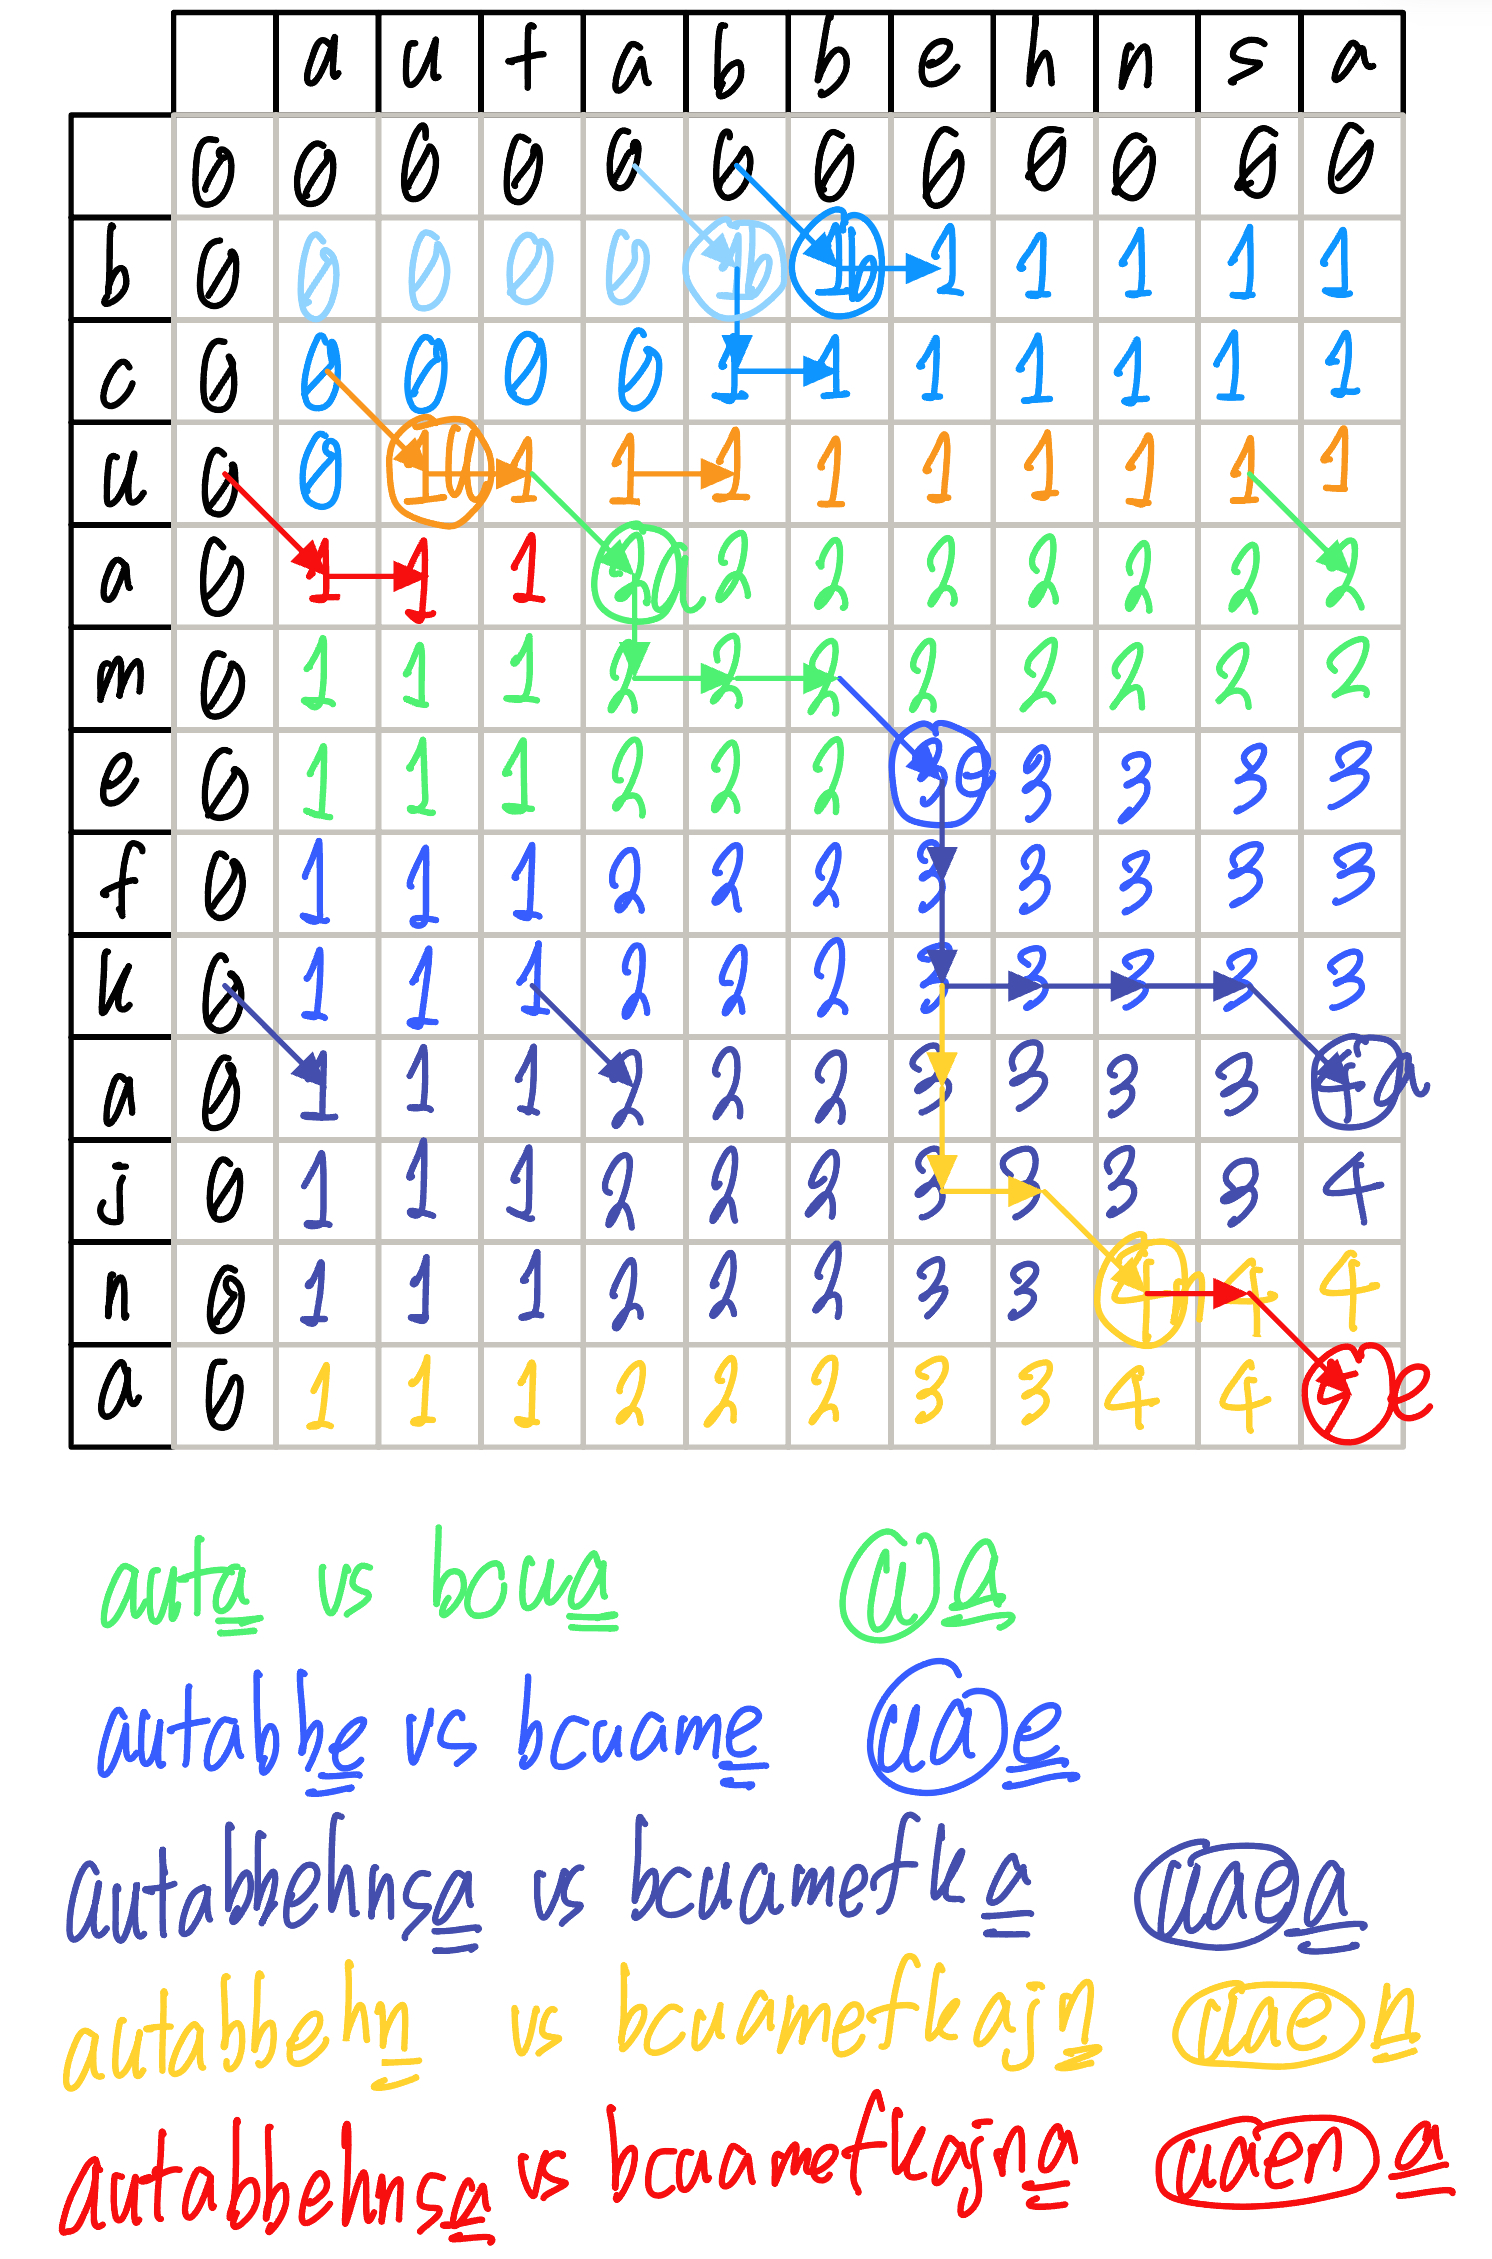 a u t a b b e h n s a
0 0 0 0 0 0 0 0 0 0 0 0
b 0 0 0 0 0 1b 1b 1 1 1 1 1
c 0 0 0 0 0 1 1 1 1 1 1 1
u 0 0 1u 1 1 1 1 1 1 1 1 1
a 0 1 1 1 2a 2 2 2 2 2 2 2
m 0 1 1 1 2 2 2 2 2 2 2 2
e 0 1 1 1 2 2 2 3e 3 3 3 3
f 0 1 1 1 2 2 2 3 3 3 3 3
k 0 1 1 1 2 2 2 3 3 3 3 3
a 0 1 1 1 2 2 2 3 3 3 3 4a
j 0 1 1 1 2 2 2 3 3 3 3 4
n 0 1 1 1 2 2 2 3 3 4n 4 4
a 0 1 1 1 2 2 2 3 3 4 4 5e
auta vs bcua u a
autabbe vs bcuame ua e
autabbehnsa vs bcuamefka uae a
autabbehn vs bcuamefkajn uae n
autabbehnsa vs bcuamefkajna uaen a